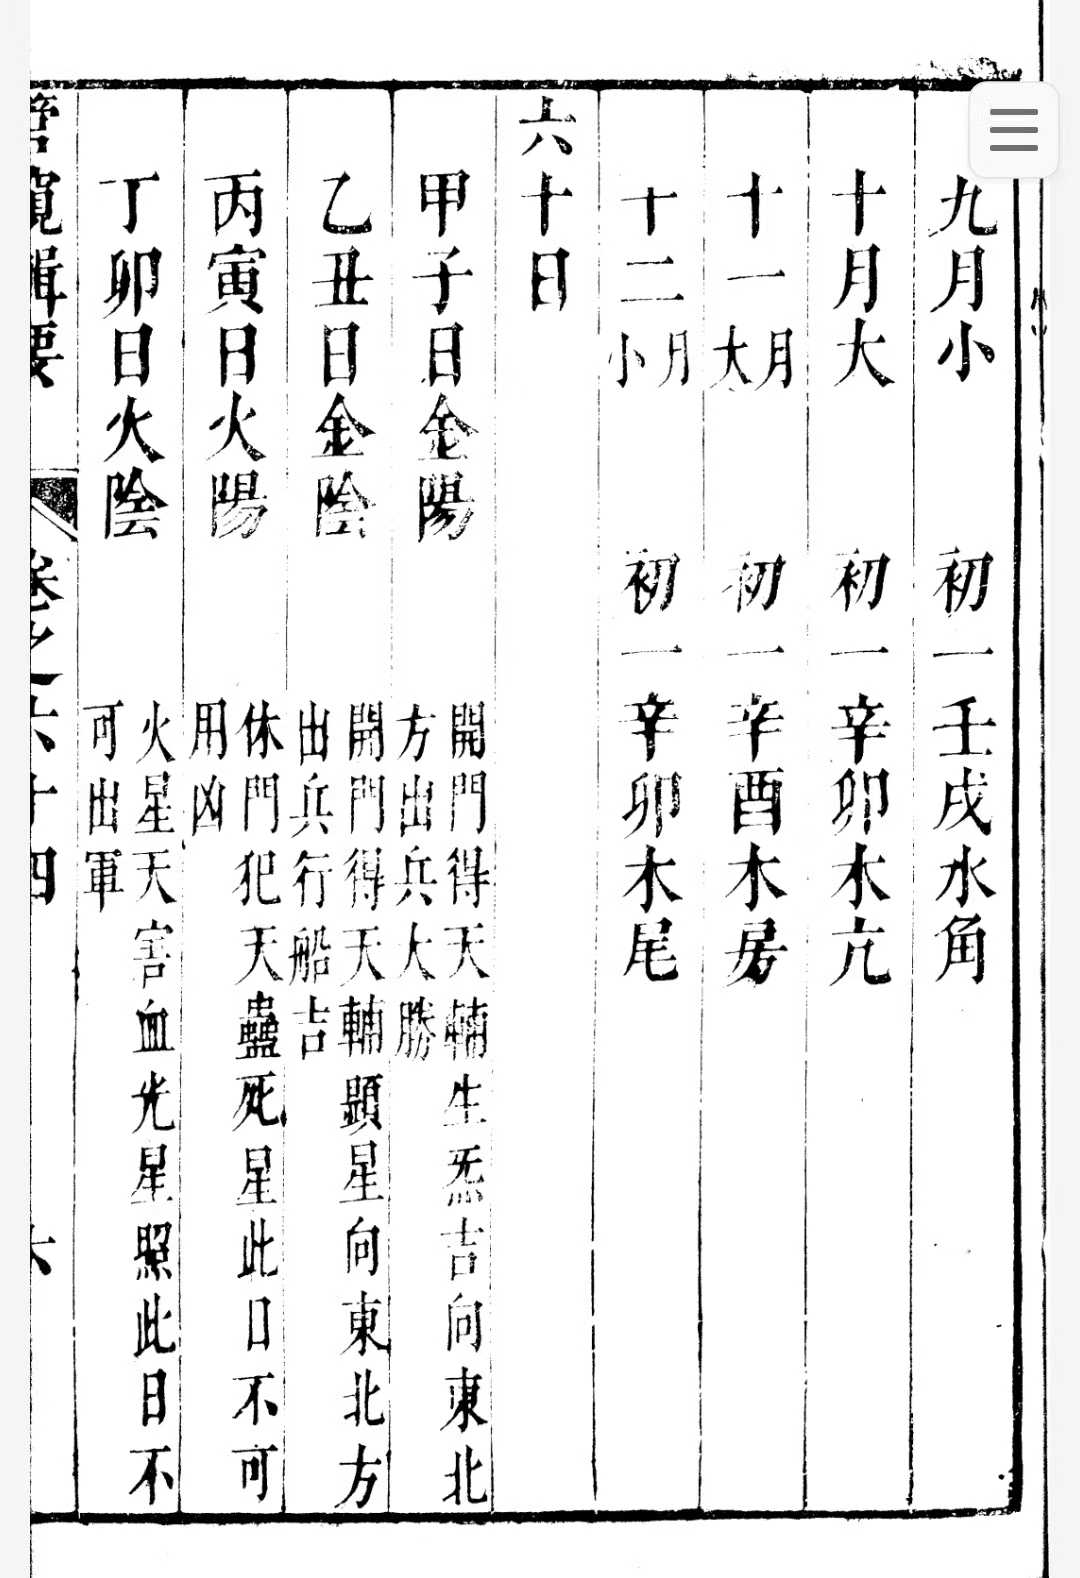 九月小　初一壬戌水角
十月大　初一辛卯木亢
十一月大　初一辛酉木房
十二月小　初一辛卯木尾
六十日
甲子日金陽　開門得天輔生炁吉向東北
方出兵大勝
乙丑日金陰　開門得天輔顯星向東北方
出兵行船吉
丙寅日火陽　休門犯天蠱死星此日不可
用凶
丁卯日火陰　火星天害血光星照此日不
可出軍
管窺輯要　卷之六十四　六